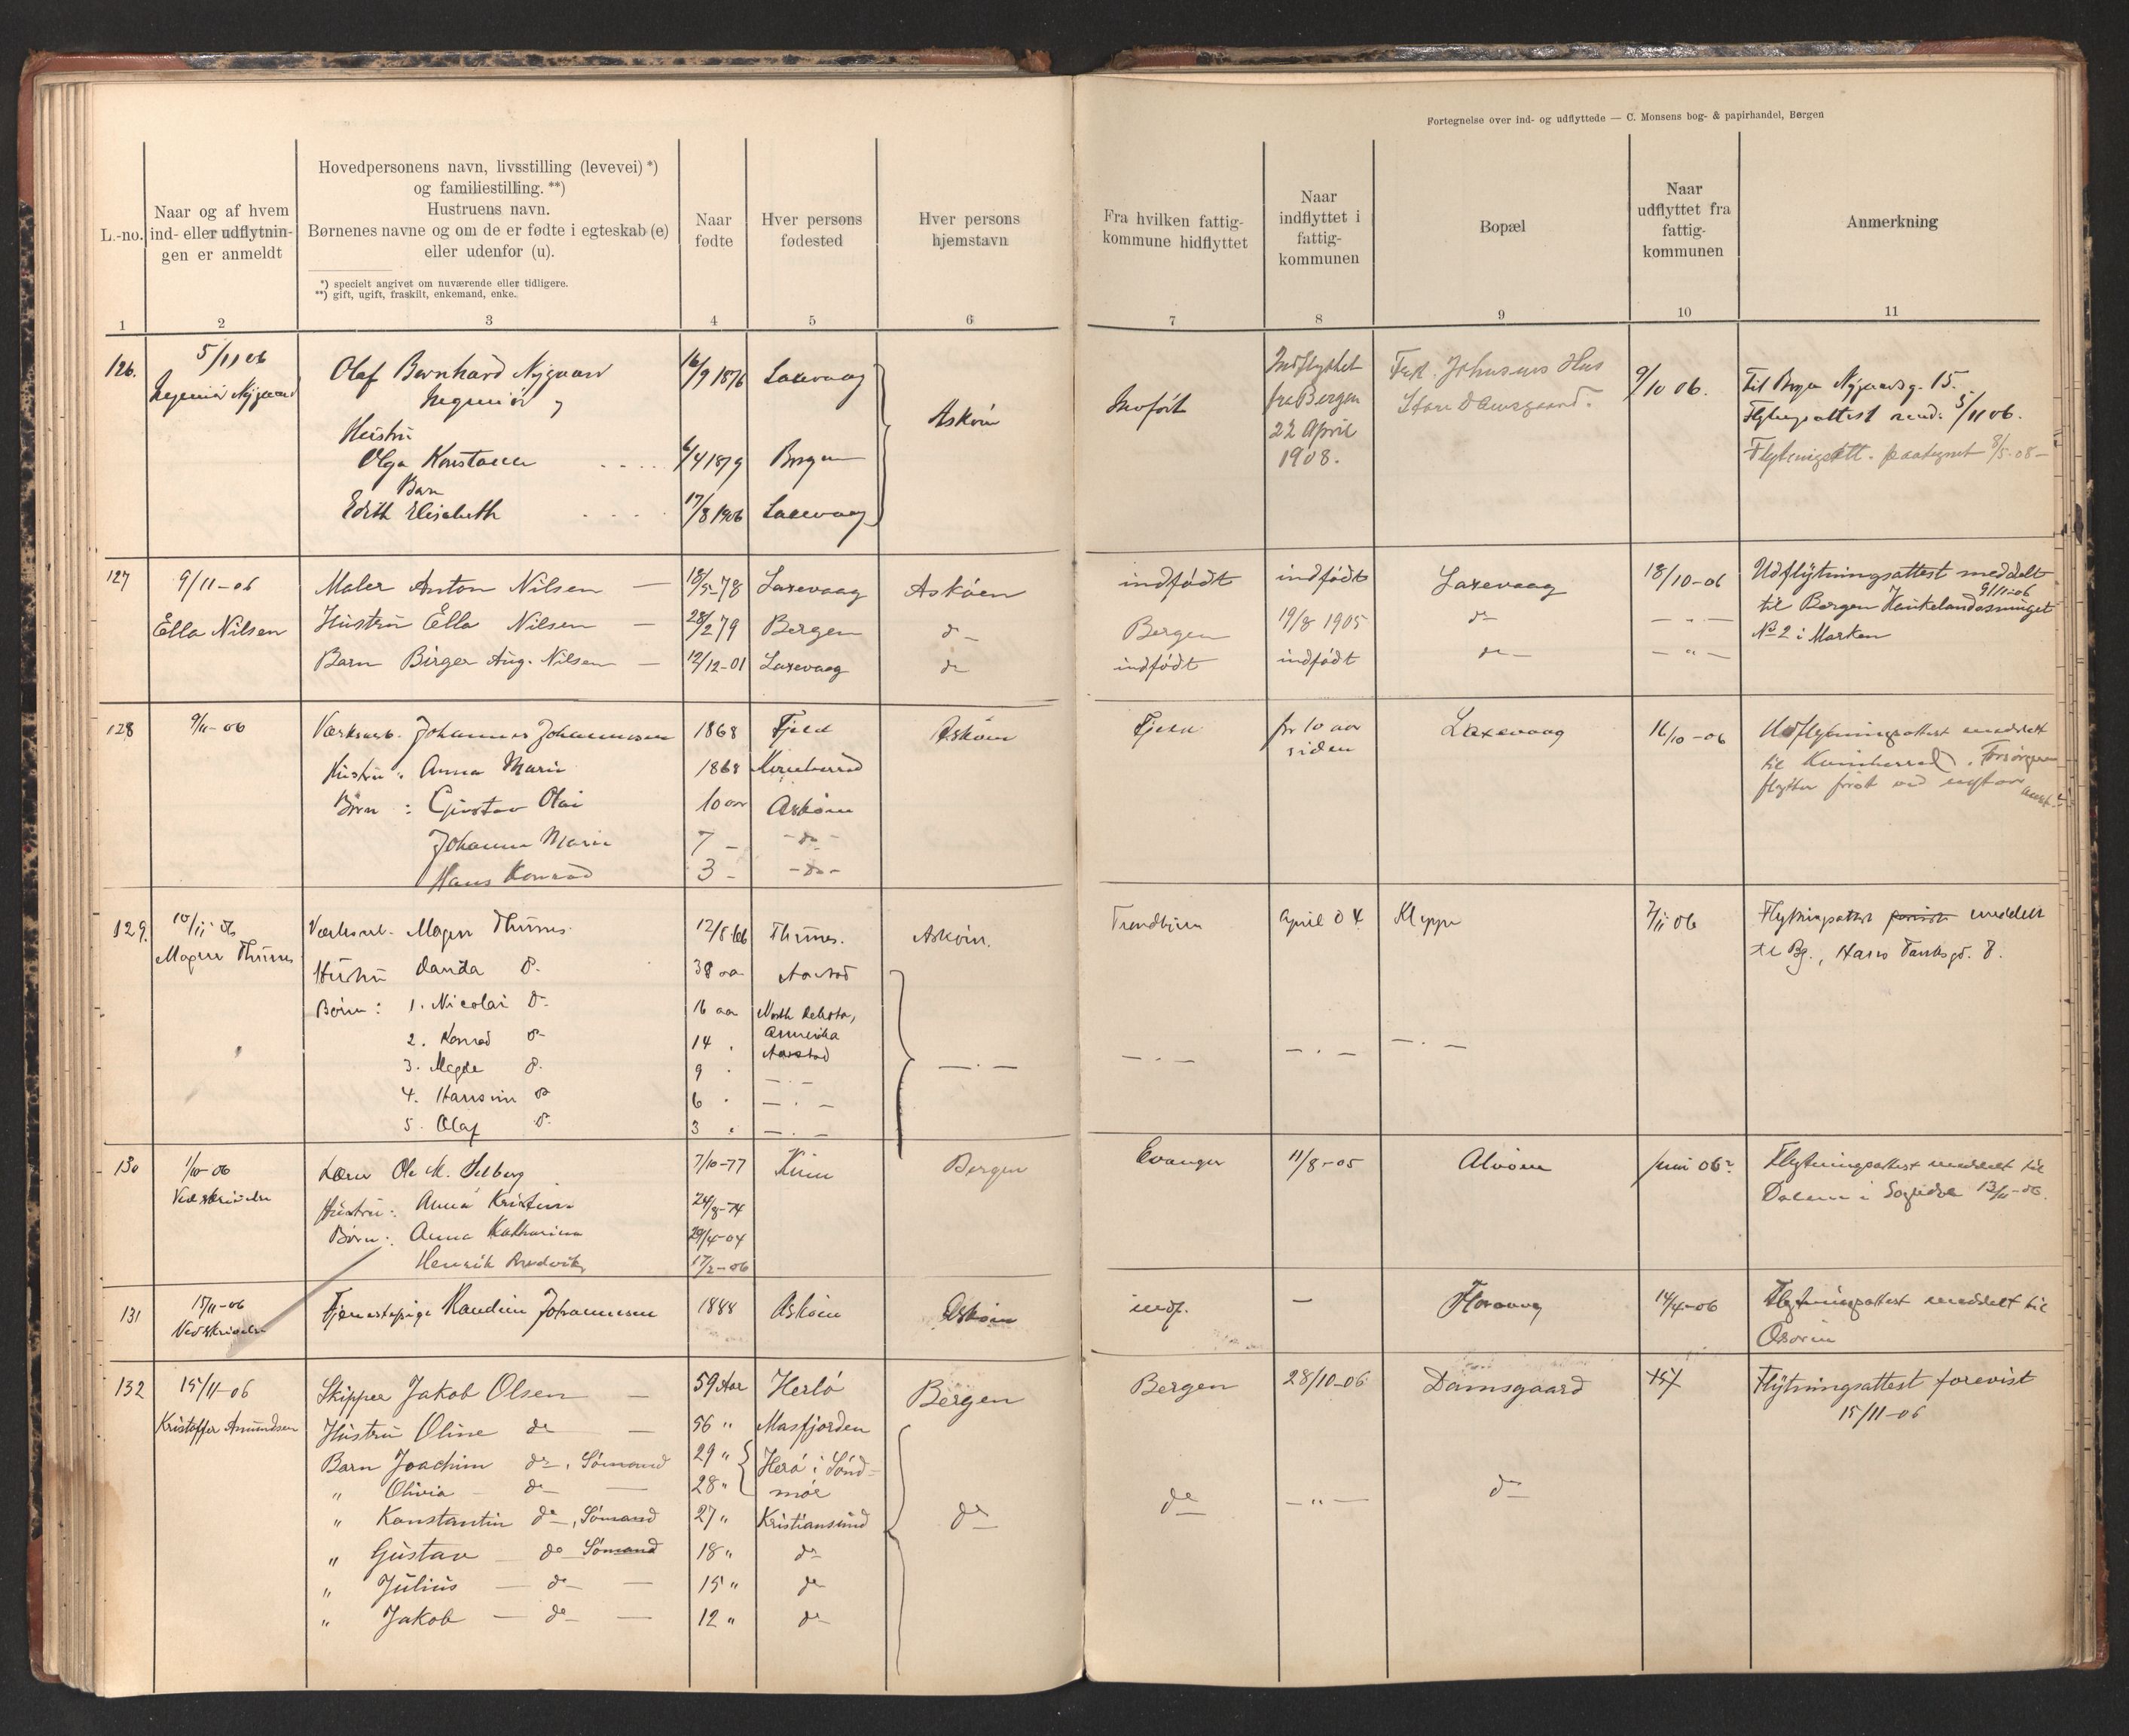 Fortegnelse over ind- og udflyttede — C. Monsens bog- & papirhandel, Bergen
L.-no.
Naar og af hvem
ind- eller udflytnin-
gen er anmeldt
Hovedpersonens navn, livsstilling (levevei) *)
og familiestilling. **)
Hustruens navn.
Børnenes navne og om de er fødte i egteskab (e)
eller udenfor (u).
*) specielt angivet om nuværende eller tidligere.
**) gift, ugift, fraskilt, enkemand, enke.
Naar
fødte
Hver persons
fødested
Hver persons
hjemstavn
Fra hvilken fattig-
kommune hidflyttet
Naar
indflyttet i
fattig-
kommunen
Bopæl
Naar
udflyttet fra
fattig-
kommunen
Anmerkning
1 2 3 4 5 6 7 8 9 10 11
126. 5/11 06 Olaf Bernhard Nygaard 16/9 1876 Laxevaag Askøen Indfødt Indflyttet Johnsens Hus 9/10 06. Til Bergen Nygaardsg. 15.
Ingeniør Nygaard Ingeniør fra Bergen Store Damsgaard. Flytningsattest 5/11 06.
Hustru 22 April
Olga Konstance 6/4 1879 Bergen 1908. Flytningsatt. paategnet 8/5-08-
Barn
Edith Elisabeth 17/8 1906 Laxevaag
127 9/11-06 Maler Anton Nilsen — 18/5-78 Laxevaag Askøen indfødt indfødt Laxevaag 18/10-06 Udflytningsattest meddelt
9/11-06
Ella Nilsen Hustru Ella Nilsen — 28/2 79 Bergen do Bergen 19/8 1905 do — " — til Bergen Haukelandssvinget
No 2 i Marken
Barn Birger Aug. Nilsen — 12/12-01 Laxevaag do indfødt indfødt do — — " —
128 9/11-06 Værksarb. Johannes Johannessen 1868 Fjeld Askøen Fjeld for 10 aar Laxevaag 16/10-06 Udflytningsattest meddelt
siden
Hustru: Anna Marie 1868 Kvinherred til Kvinherred. Forsørgeren
Børn : Gustav Olai 10 aar Askøen flytter først ved nytaar
Johanna Marie 7 - -do-
Hans Konrad 3 - -do-
129. 10/11 06 Værksarb. Mogens Thunes 12/8 66 Thunes. Askøen. Trondhjem April 04 Kleppe 7/11 06 Flytningsattest meddelt
Mogens Thunes til Bg.,
Hustru do. 38 aar Aarstad
Børn: 1. Nicolai do. 16 aar North Dakota,
Amerika
2. Konrad do 14 " Aarstad
3. Magda do. 9 " — " —
4. Hansine do 6 " — " —
5. Olaf do. 3 " — " —
130 1/10-06 Lærer Ole M. Selberg 7/10-77 Kinn Bergen Evanger 11/8-05 Alvøen juni 06? Flytningsattest meddelt til
Ved skrivelse 13/11-06.
Hustru: Anna Kristine 24/8-74
Børn: Anna Katharina 29/4-04
Henrik 17/2-06
131 15/11-06 Tjenestepige Johannessen 1888 Askøen Askøen indf. — 14/4-06 Flytningsattest meddelt til
Ved skrivelse Osøren
132 15/11-06 Skipper Jakob Olsen — 59 Aar Herlø Bergen Bergen 28/10-06 Damsgaard Flytningsattest forevist
15/11-06
Kristoffer Amundsen Hustru Oline do — 56 " Masfjorden
Barn Joachim do, Sømand 29 " Herø i Sønd-
" Olivia — do — 28 " møe
" Konstantin do, Sømand 27 " Kristiansund do do — " — do
" Gustav — do Sømand 18 " do
" Julius — do — 15 " do
" Jakob — do — 12 " do